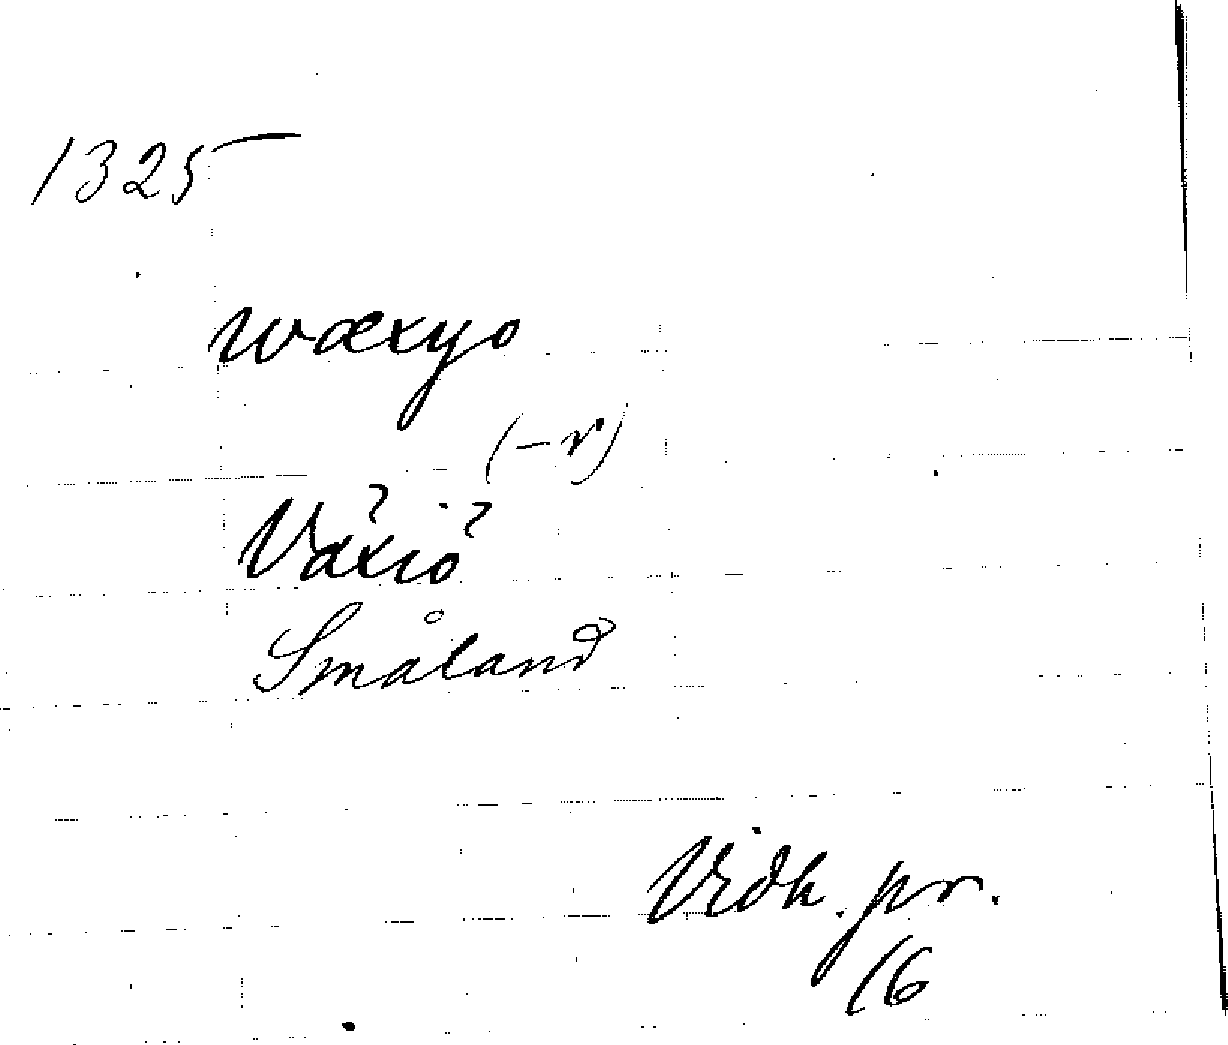 1325
wæxyo
(-r)
Växiö
Småland
Vidh. pr.
16